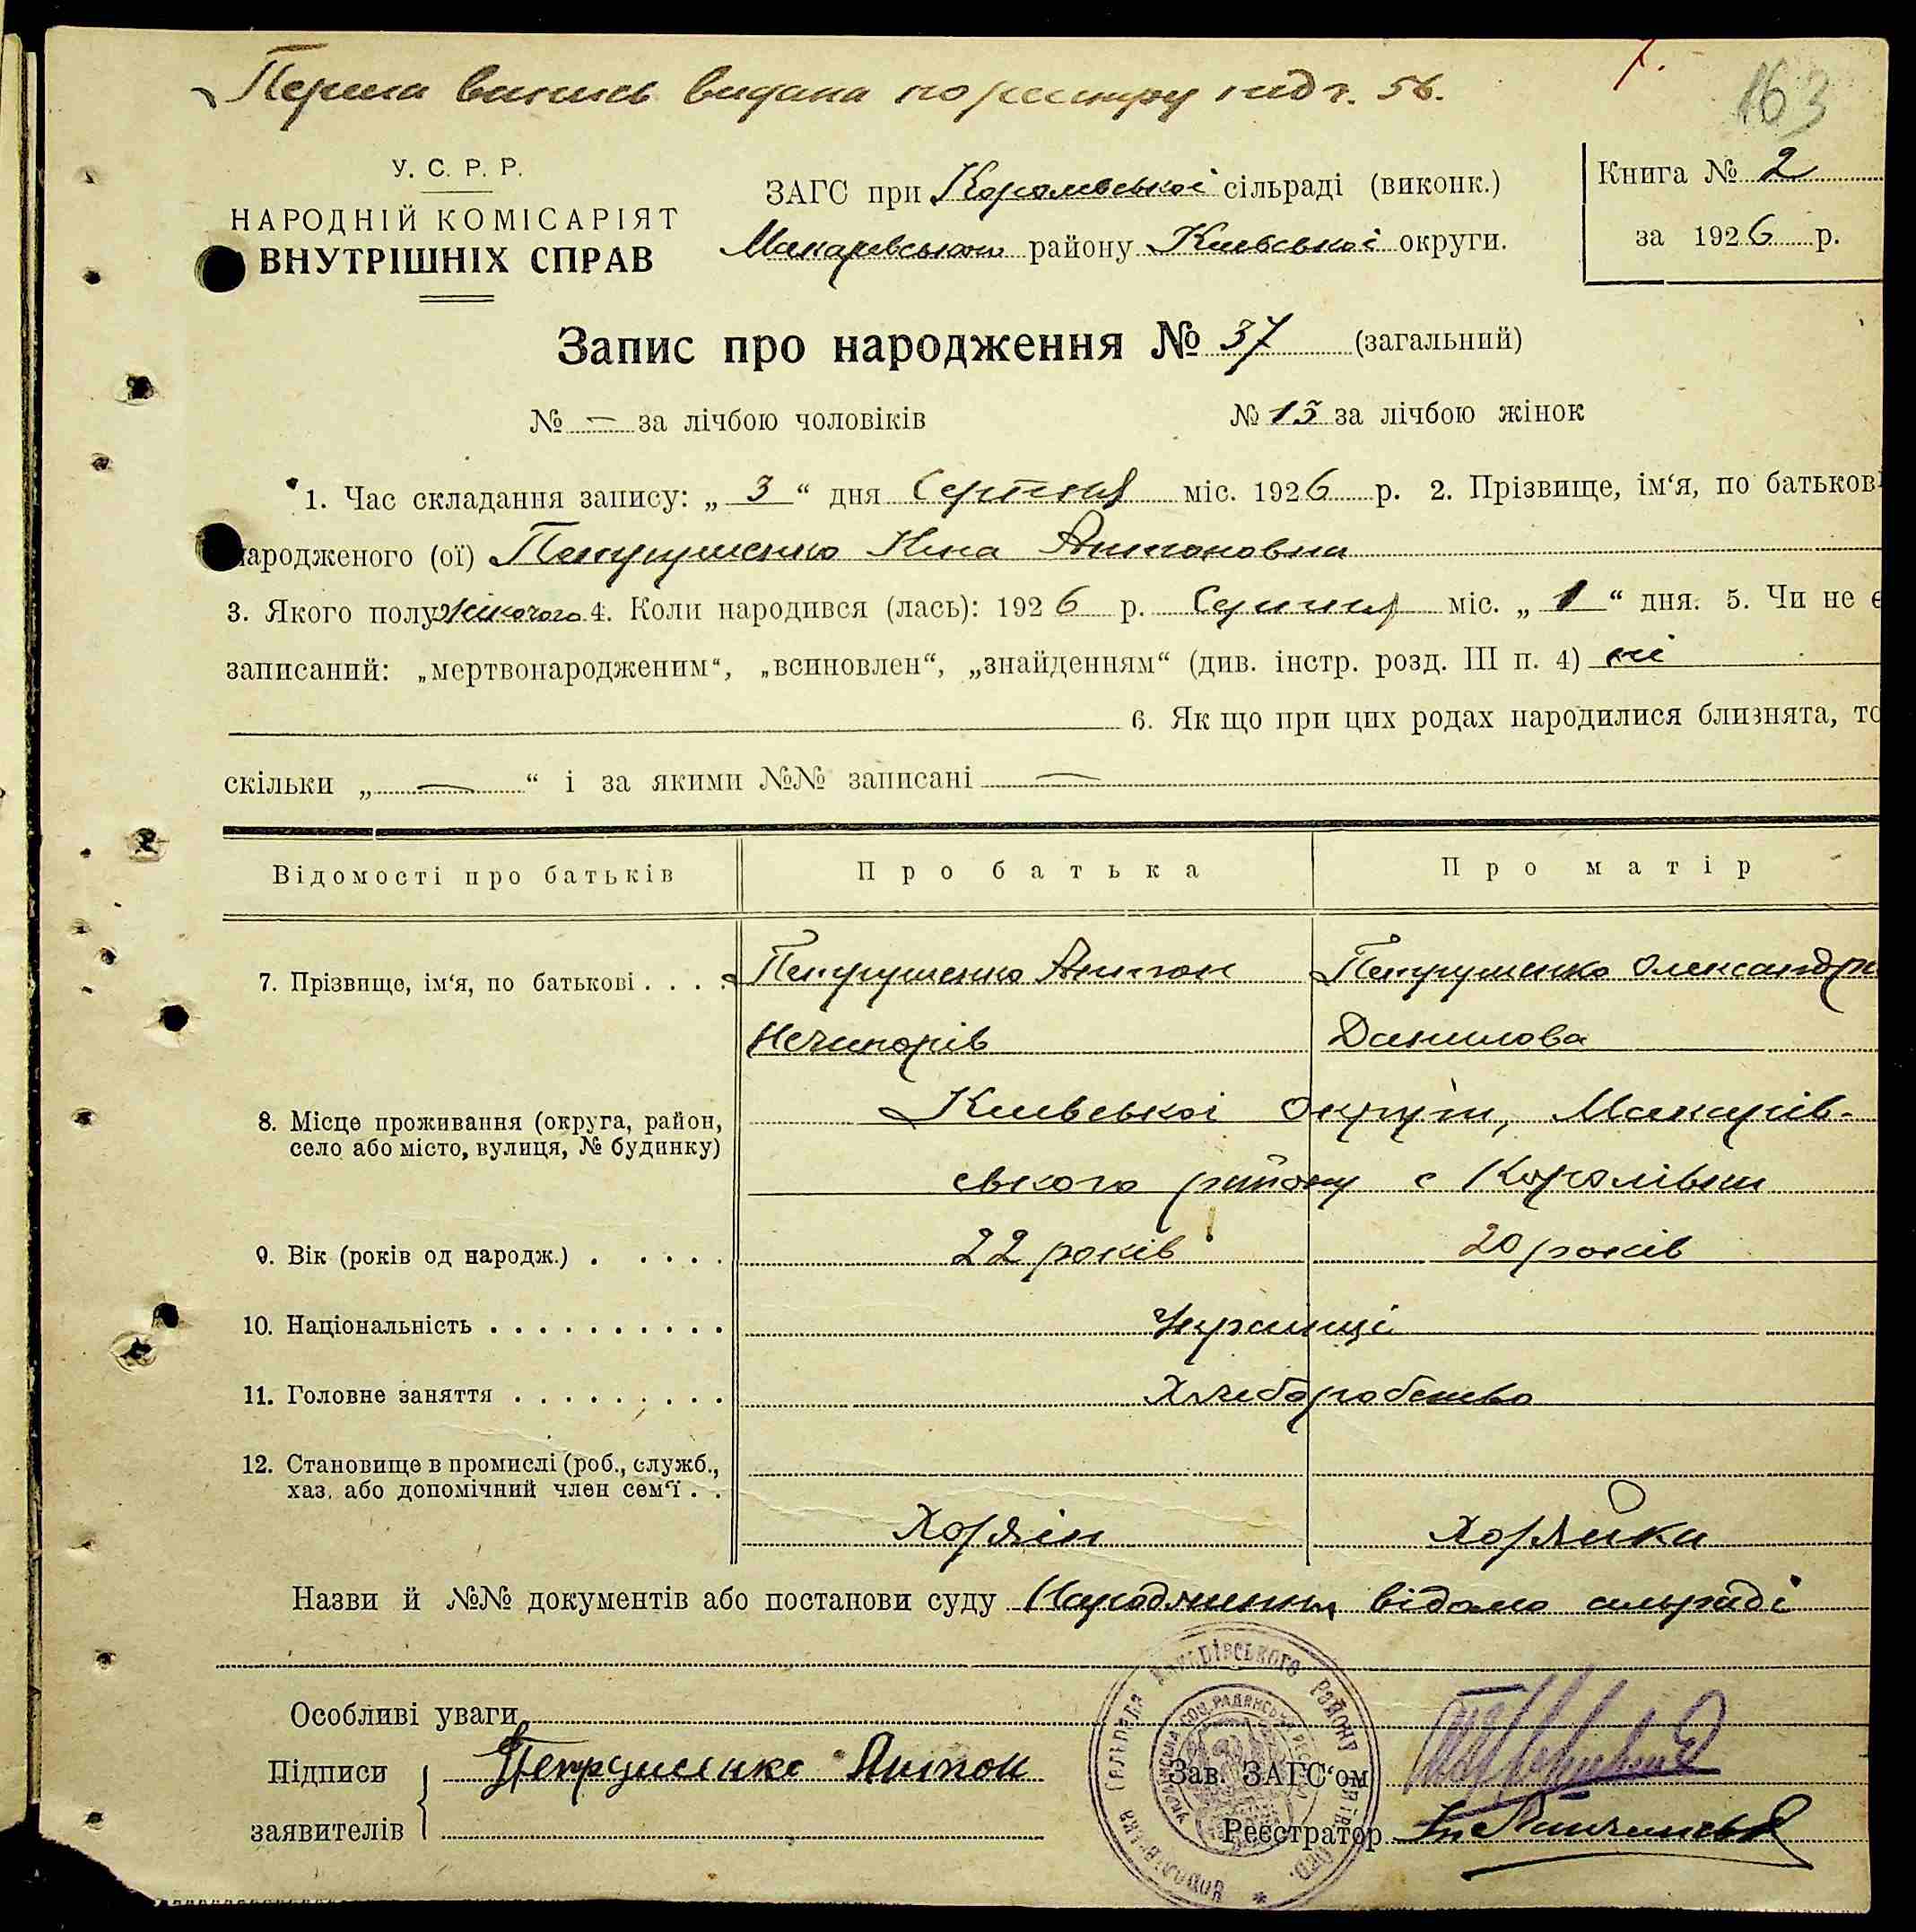 Перша випись видана по реєстру 56.
163
У. С. Р. Р.
НАРОДНІЙ КОМІСАРІЯТ
ВНУТРІШНІХ СПРАВ
ЗАГС при Королівської сільраді (виконк.)
Макарівського району Київської округи.
Книга № 2
за 1926 р.
Запис про народження № 37 (загальний)
№ — за лічбою чоловіків № 15 за лічбою жінок
1. Час складання запису: „ 3 “ дня Серпня міс. 1926 р. 2. Прізвище, ім‘я, по батькові
народженого (ої) Петрушенко Нина Антоновна
3. Якого полу жіночого 4. Коли народився (лась): 1926 р. Серпня міс. „ 1 “ дня. 5. Чи не є
записаний: „мертвонародженим“, „всиновлен“, „знайденням“ (див. інстр. розд. III п. 4) ні
6. Як що при цих родах народилися близнята, то
скільки „ — “ і за якими №№ записані —
Відомості про батьків Про батька Про матір
7. Прізвище, ім‘я, по батькові . . . . Петрушенко Антон Петрушенко Олександра
Нечипорів Данилова
8. Місце проживання (округа, район, село або місто, вулиця, № будинку) Київської Округи, Макарів-
ського району с Королівки
9. Вік (років од народж.) . . . . . 22 років 20 років
10. Національність . . . . . . . . . . Українці
11. Головне заняття . . . . . . . . . Хліборобство
12. Становище в промислі (роб., служб.,
хаз. або допомічний член сем‘ї . .
Хозяїн Хозяйка
Назви й №№ документів або постанови суду Народження відомо сільраді
Особливі уваги
Підписи Петрушенко Антон Зав. ЗАГС‘ом
заявителів Реєстратор